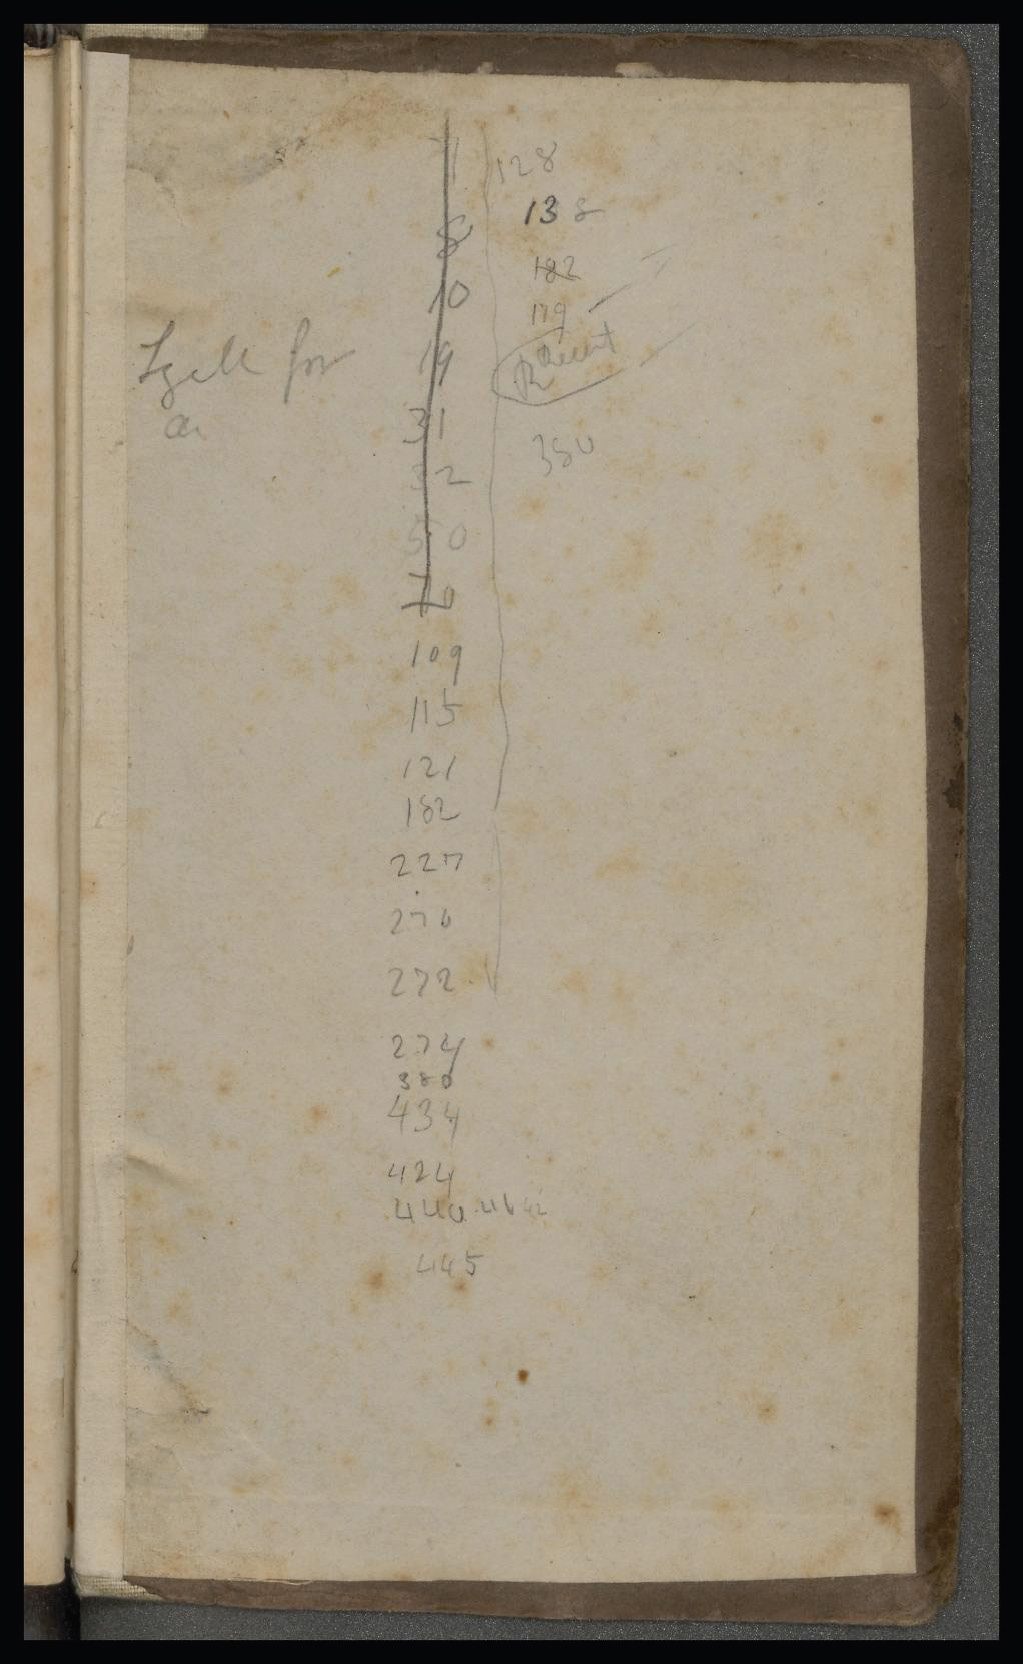 128
138
8
182
10
179
19
for
31
380
32
50
70
109
115
121
182
227
276
272
274
380
434
424
440
445